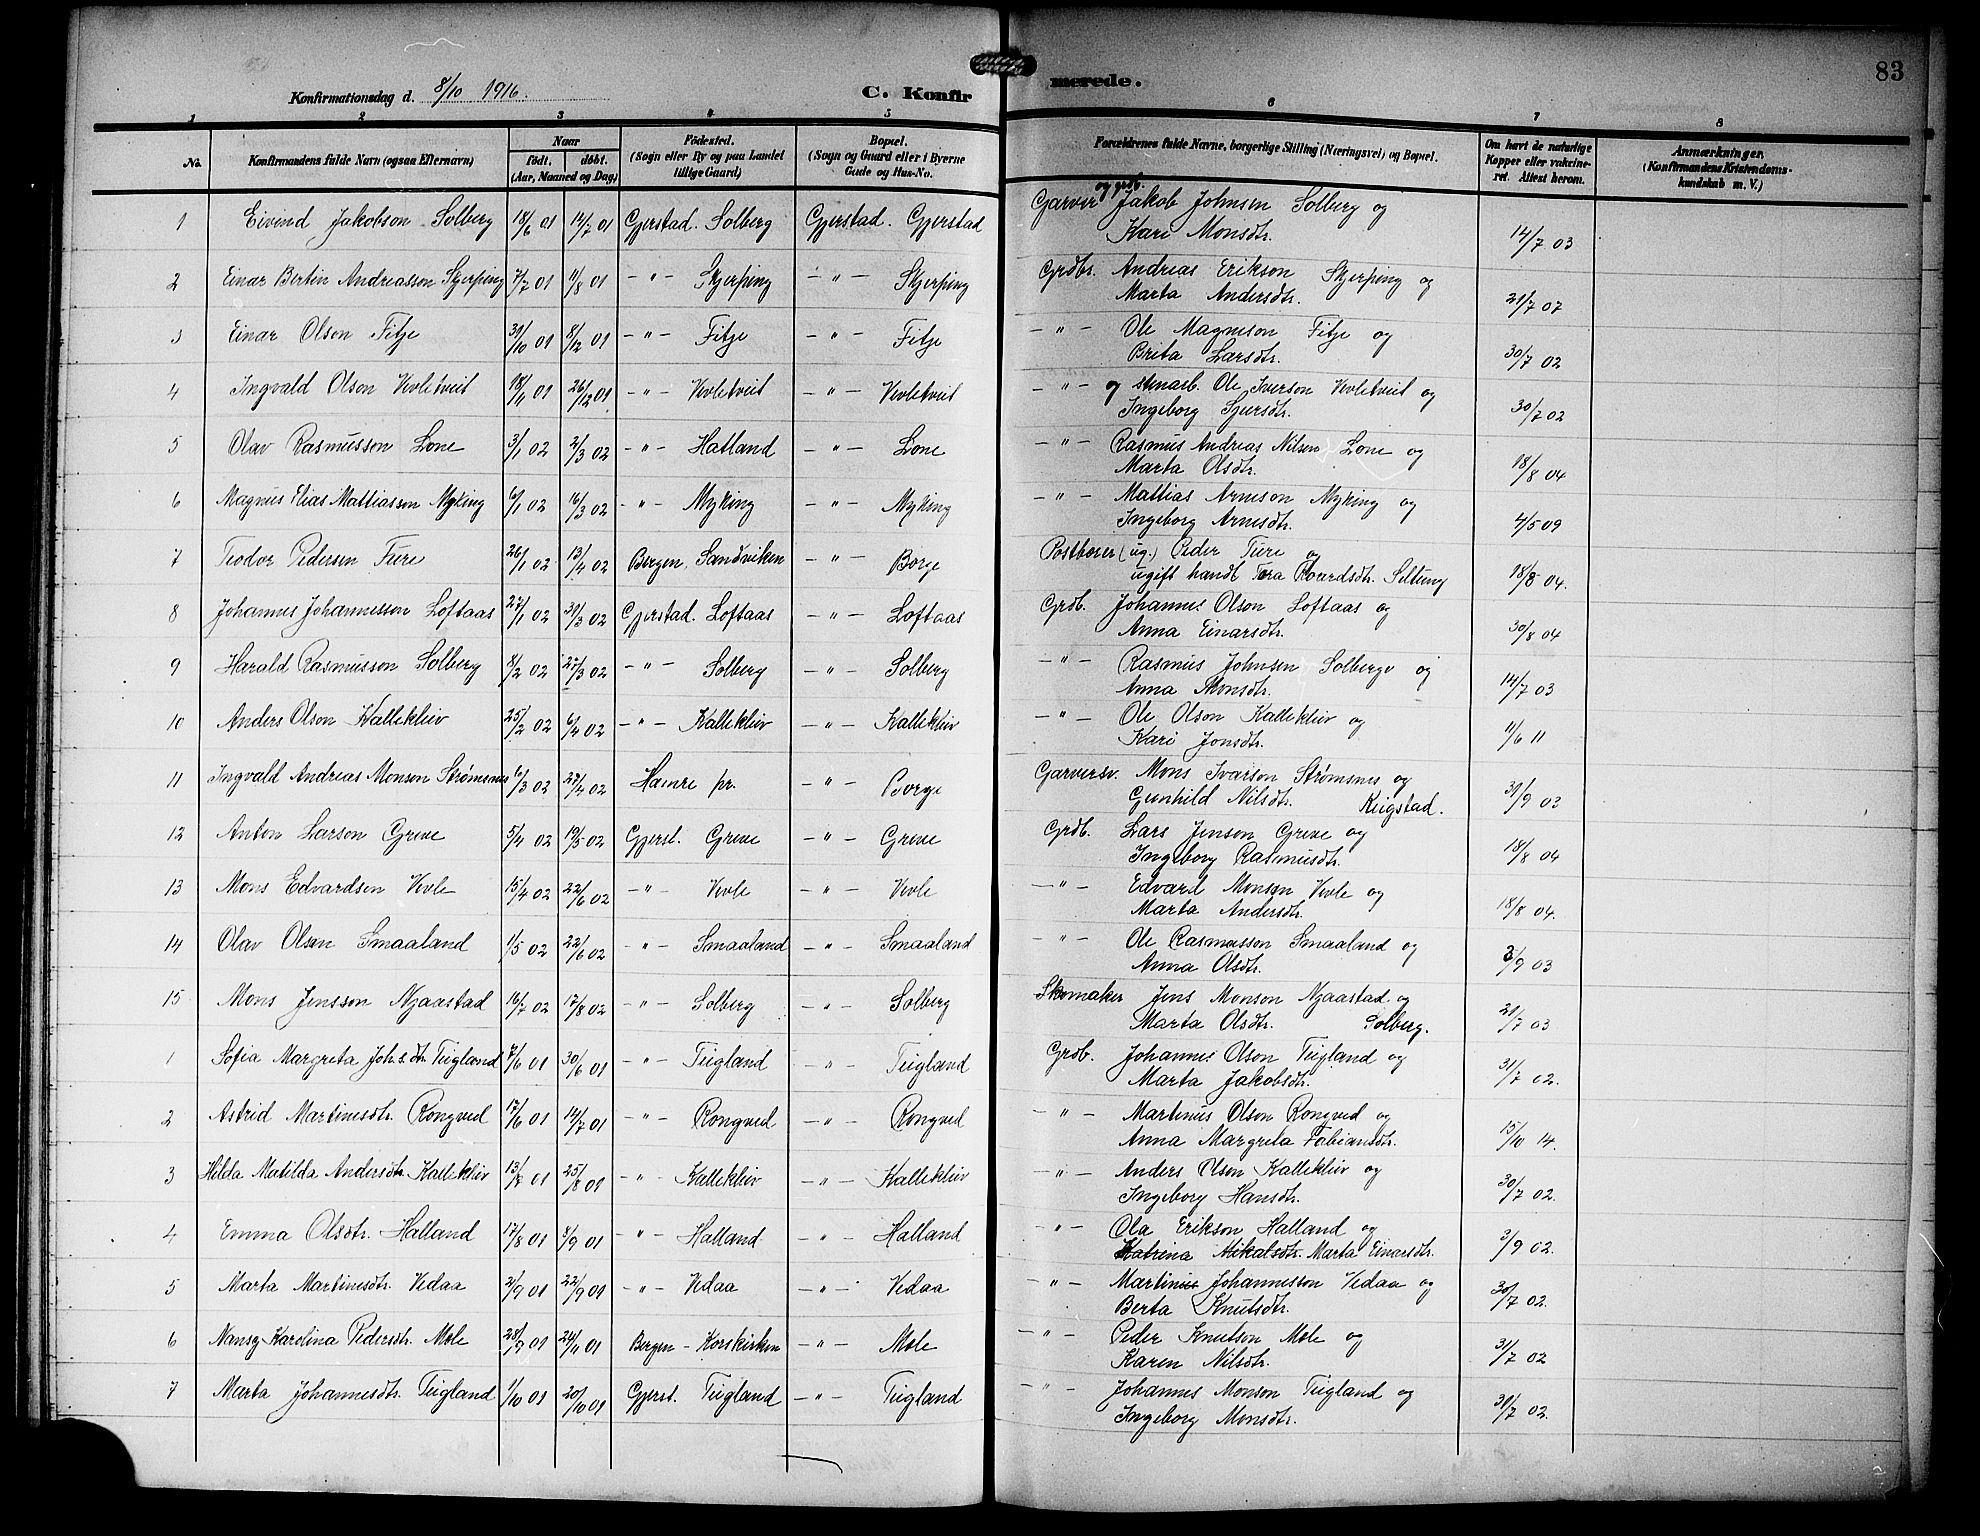 83
Konfirmationsdag d. 8/10 1916.
C. Konfirmerede.
1 2 3 4 5 6 7 8
No. Konfirmandens fulde Navn (ogsaa Efternavn) Naar født. døbt. (Aar, Maaned og Dag) Fødested. (Sogn eller By og paa Landet tillige Gaard) Bopæl. (Sogn og Gaard eller i Byerne Gade og Hus-No. Forældrenes fulde Navne, borgerlige Stilling (Næringsvei) og Bopæl. Om havt de naturlige Kopper eller vaccineret. Attest herom. Anmærkninger. (Konfirmandens Kristendomskundskab m. V.)
1 Eivind Jakobson Solberg 18/6 01 14/7 01 Gjerstad. Solberg Gjerstad. Gjerstad Garver og grdb. Jakob Johnsen Solberg og
Kari Monsdtr. 14/7 03
2 Einar Bertin Andreasson Skjerping 7/7 01 11/8 01 -"- Skjerping -"- Skjerping Grdbr. Andreas Erikson Skjerping og
Marta Andersdtr. 21/7 07
3 Einar Olson Fitje 31/10 01 8/12 01 -"- Fitje -"- Fitje -"- Ole Magneson Fitje og
Brita Larsdtr. 30/7 02
4 Ingvald Olson Vevletveit 18/11 01 26/12 01 -"- Vevletveit -"- Vevletveit -"- og stenarb. Ole Iverson Vevletveit og
Ingeborg Sjursdtr. 30/7 02
5 Olav Rasmusson Lone 3/1 02 2/3 02 -"- Hatland -"- Lone -"- Rasmus Andreas Nilsen Lone og
Marta Olsdtr. 18/8 04
6 Magnus Elias Mattiasson Myking 6/1 02 16/3 02 -"- Myking -"- Myking -"- Mattias Arneson Myking og
Ingeborg Arnesdtr. 4/5 09
7 Teodor Pedersen Fure 26/1 02 13/4 02 Bergen, Sandviken -"- Borge Postbærer (ug.) Peder Fure og
ugift handl. Tora 18/8 04.
8 Johannes Johannesson Loftaas 27/1 02 31/3 02 Gjerstad. Loftaas -"- Loftaas Grdb. Johannes Olson Loftaas og
Anna Einarsdtr. 30/8 04
9 Harald Rasmusson Solberg 8/2 02 27/3 02 -"- Solberg -"- Solberg -"- Rasmus Johnsen Solberg og
Anna Monsdtr. 14/7 03
10 Anders Olson Kallekleiv 25/2 02 6/4 02 -"- Kallekleiv -"- Kallekleiv -"- Ole Olson Kallekleiv og
Kari Jonsdtr. 11/6 11
11 Ingvald Andreas Monsen Strømsnes 6/3 02 27/4 02 Hamre pr. -"- Borge Garversv. Mons Ivarson Strømsnes og
Gunhild Nilsdtr. Reigstad. 31/9 03
12 Anton Larson Greve 5/4 02 19/5 02 Gjerst. Greve -"- Greve Grdb. Lars Jenson Greve og
Ingeborg Rasmusdtr. 18/8 04
13 Mons Edvardsen Vevle 15/4 02 22/6 02 -"- Vevle -"- Vevle -"- Edvard Monsen Vevle og
Marta Andersdtr. 18/8 04.
14 Olav Olson Smaaland 1/5 02 22/6 02 -"- Smaaland -"- Smaaland -"- Ole Rasmusson Smaaland og
Anna Olsdtr. 3/9 03
15 Mons Jensson Njaastad 16/7 02 17/8 02 -"- Solberg -"- Solberg Skomaker Jens Monson Njaastad og
Marta Olsdtr. Solberg. 21/7 03
1 Sofia Margreta Joh.s.dtr. Tugland 7/6 01 30/6 01 -"- Tugland -"- Tugland Grdb. Johannes Olson Tugland og
Marta Jakobsdtr. 31/7 02.
2 Astrid Martinesdtr. Rongved 17/6 01 14/7 01 -"- Rongved -"- Rongved -"- Martinus Olson Rongved og
Anna Margreta Fabiansdtr. 15/10 14.
3 Hilda Matilda Andersdtr. Kallekleiv 13/7 01 25/8 01 -"- Kallekleiv -"- Kallekleiv -"- Anders Olson Kallekleiv og
Ingeborg Hansdtr. 30/7 02.
4 Emma Olsdtr. Halland 17/8 01 8/9 01 -"- Halland -"- Halland -"- Ola Erikson Halland og
Katrina Mikalsdtr. Marta Einarsdtr. 3/9 02.
5 Marta Martinesdtr. Vedaa 2/9 01 22/9 01 -"- Vedaa -"- Vedaa -"- Martinus Johannesson Vedaa og
Berta Knutsdtr. 30/7 02.
6 Nansy Karolina Pedersdtr. Mele 28/9 01 24/11 01 Bergen - Korskirken -"- Mele -"- Peder Knutson Mele og
Karen Nilsdtr. 31/7 02
7 Marta Johannesdtr. Tugland 1/10 01 20/10 01 Gjerst. Tugland -"- Tugland -"- Johannes Monson Tugland og
Ingeborg Monsdtr. 31/7 02.